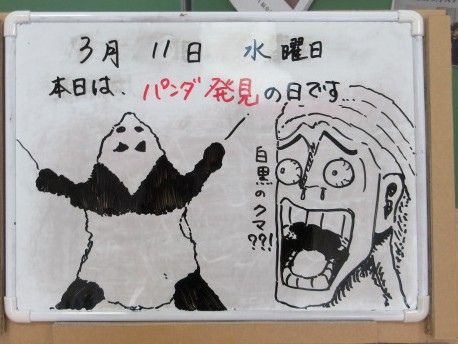 3月 11日 水曜日
本日は、パンダ発見の日です…
白黒のクマ??!